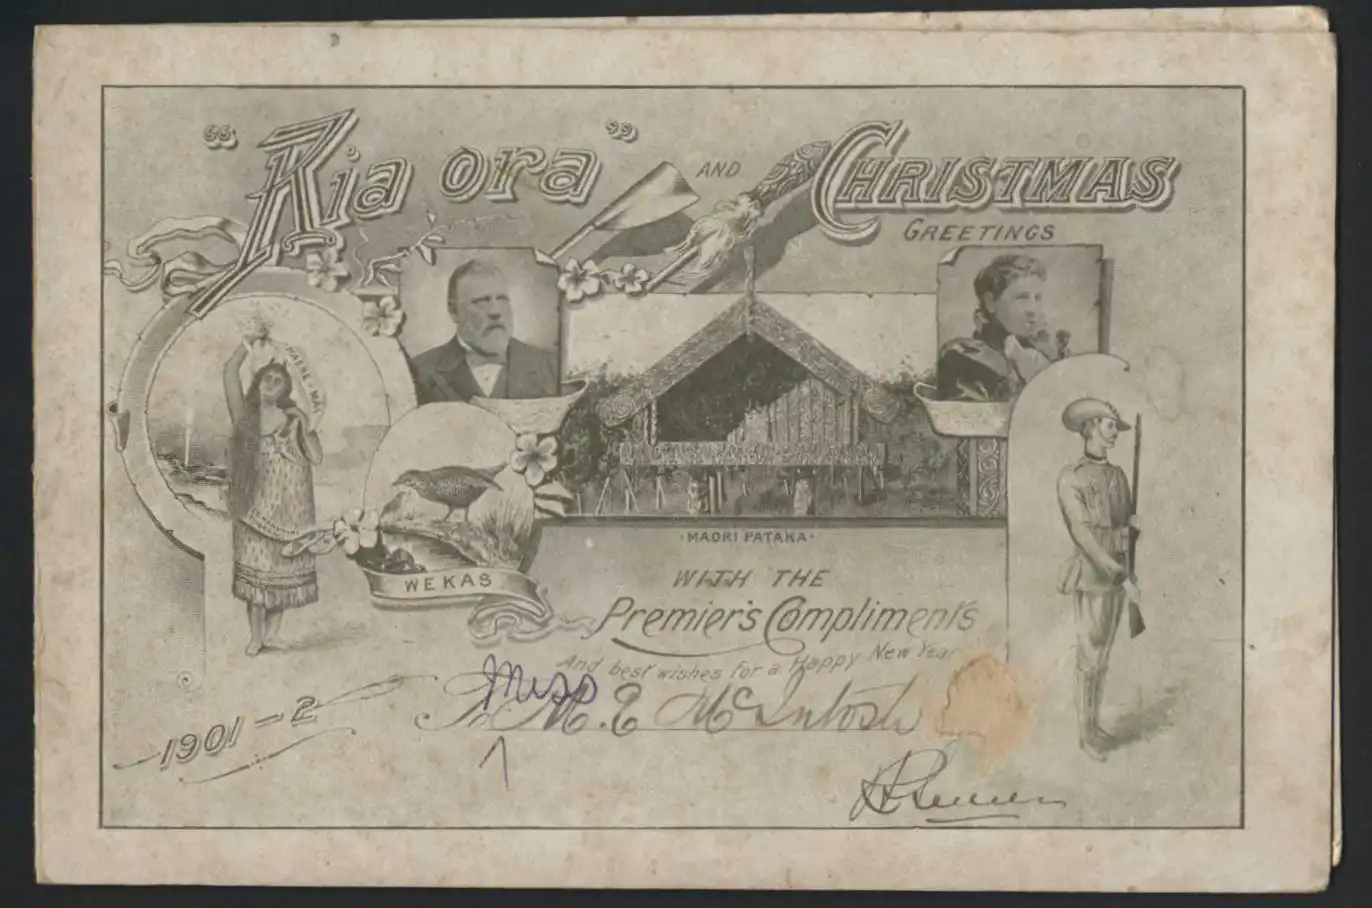 "Kia ora" AND CHRISTMAS
GREETINGS
HAERE·MAI
WEKAS
·MAORI PATAKA·
WITH THE
Premier's Compliments
And best wishes for a Happy New Year
Miss
To M. E McIntosh
1901-2